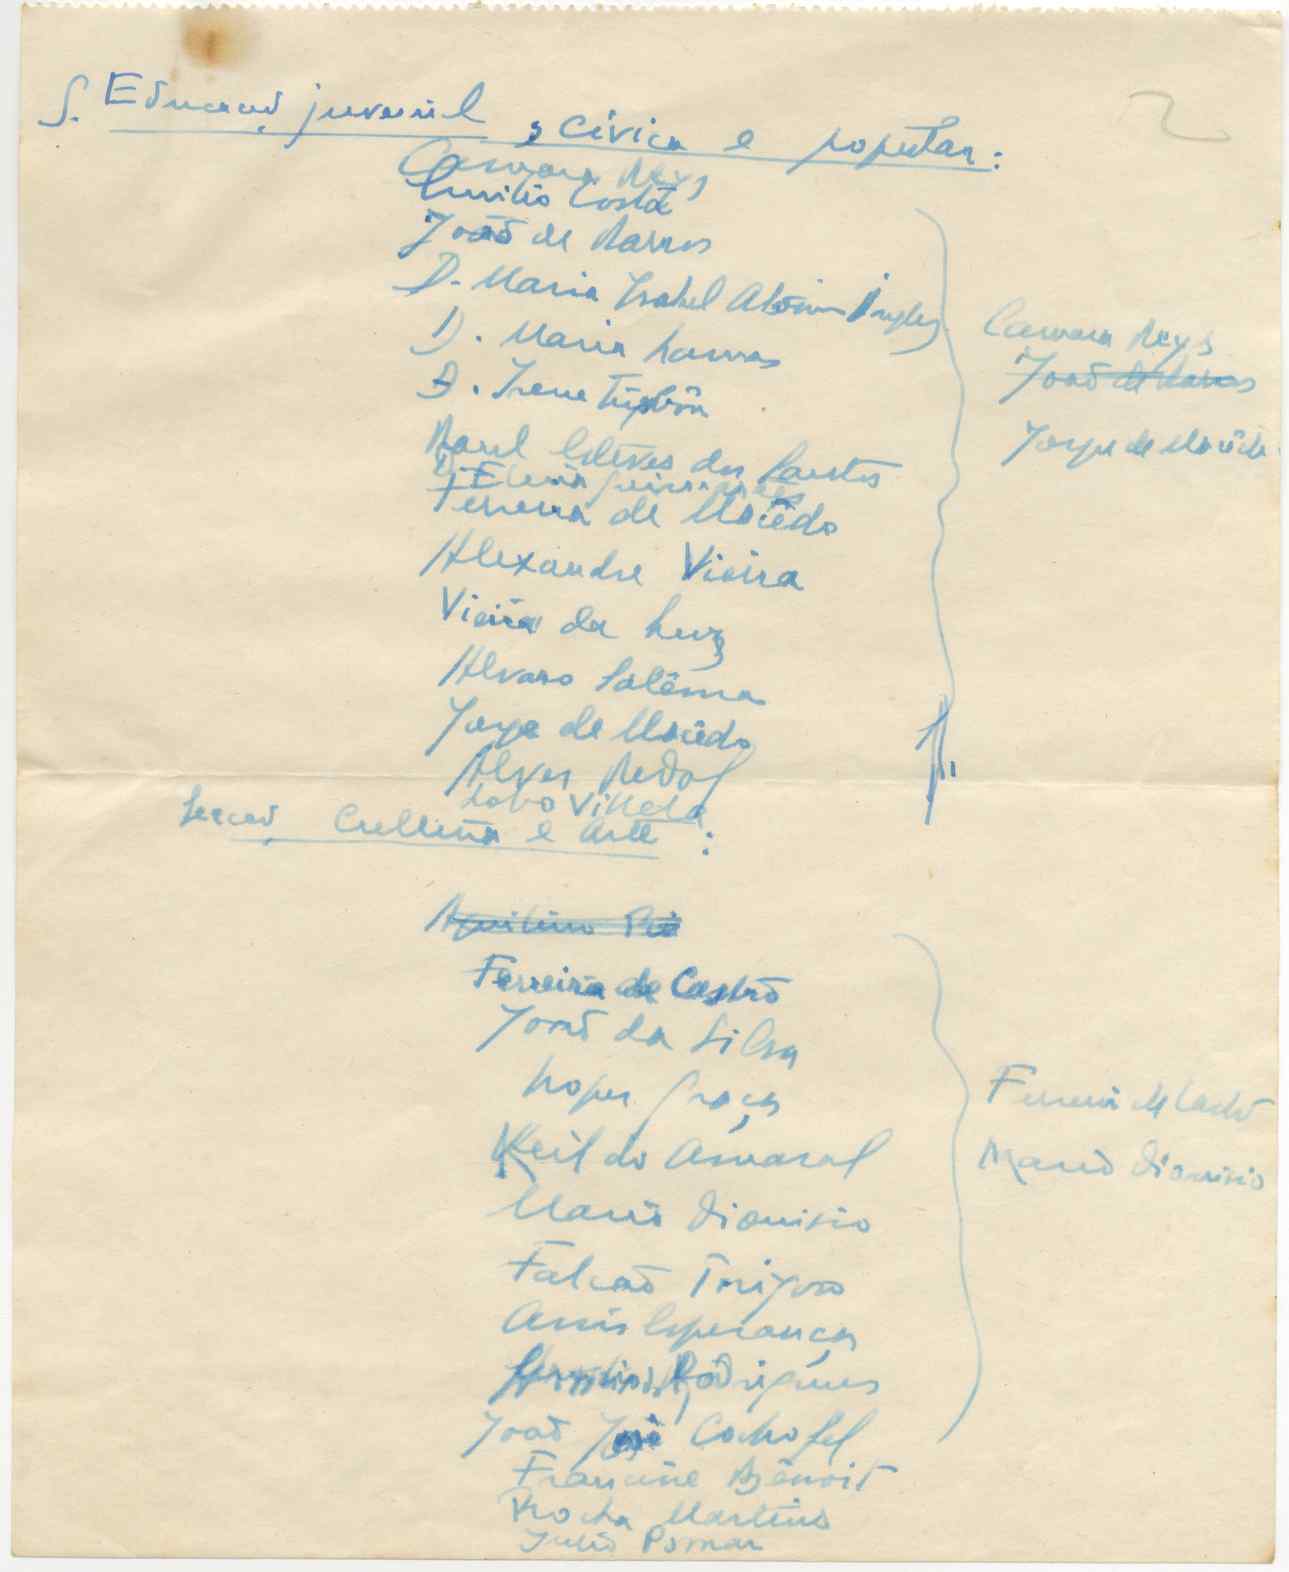 S. Educação juvenil, civica e popular:
Camara Reys
Emilio Costa
João de Barros
D. Maria Isabel Aboim Ingles
D. Maria Lamas
D. Irene
Raul Esteves dos Santos
D. Elina Guimarães
Ferreira de Macêdo
Alexandre Vieira
Vieira da Luz
Alvaro Salêma
Jorge de Macêdo
Alves Redol
Lobo Villela
Camara Reys
João de Barros
Jorge de Macêdo
Secção Cultura e Arte:
Aquilino Ribº
Ferreira de Castro
João da Silva
Lopes Graça
Keil do Amaral
Mario Dionisio
Falcão Trigoso
Assis Esperança
Rodrigues
João José Cochofel
Francine Benoit
Rocha Martins
Julio Pomar
Ferreira de Castro
Mario Dionisio